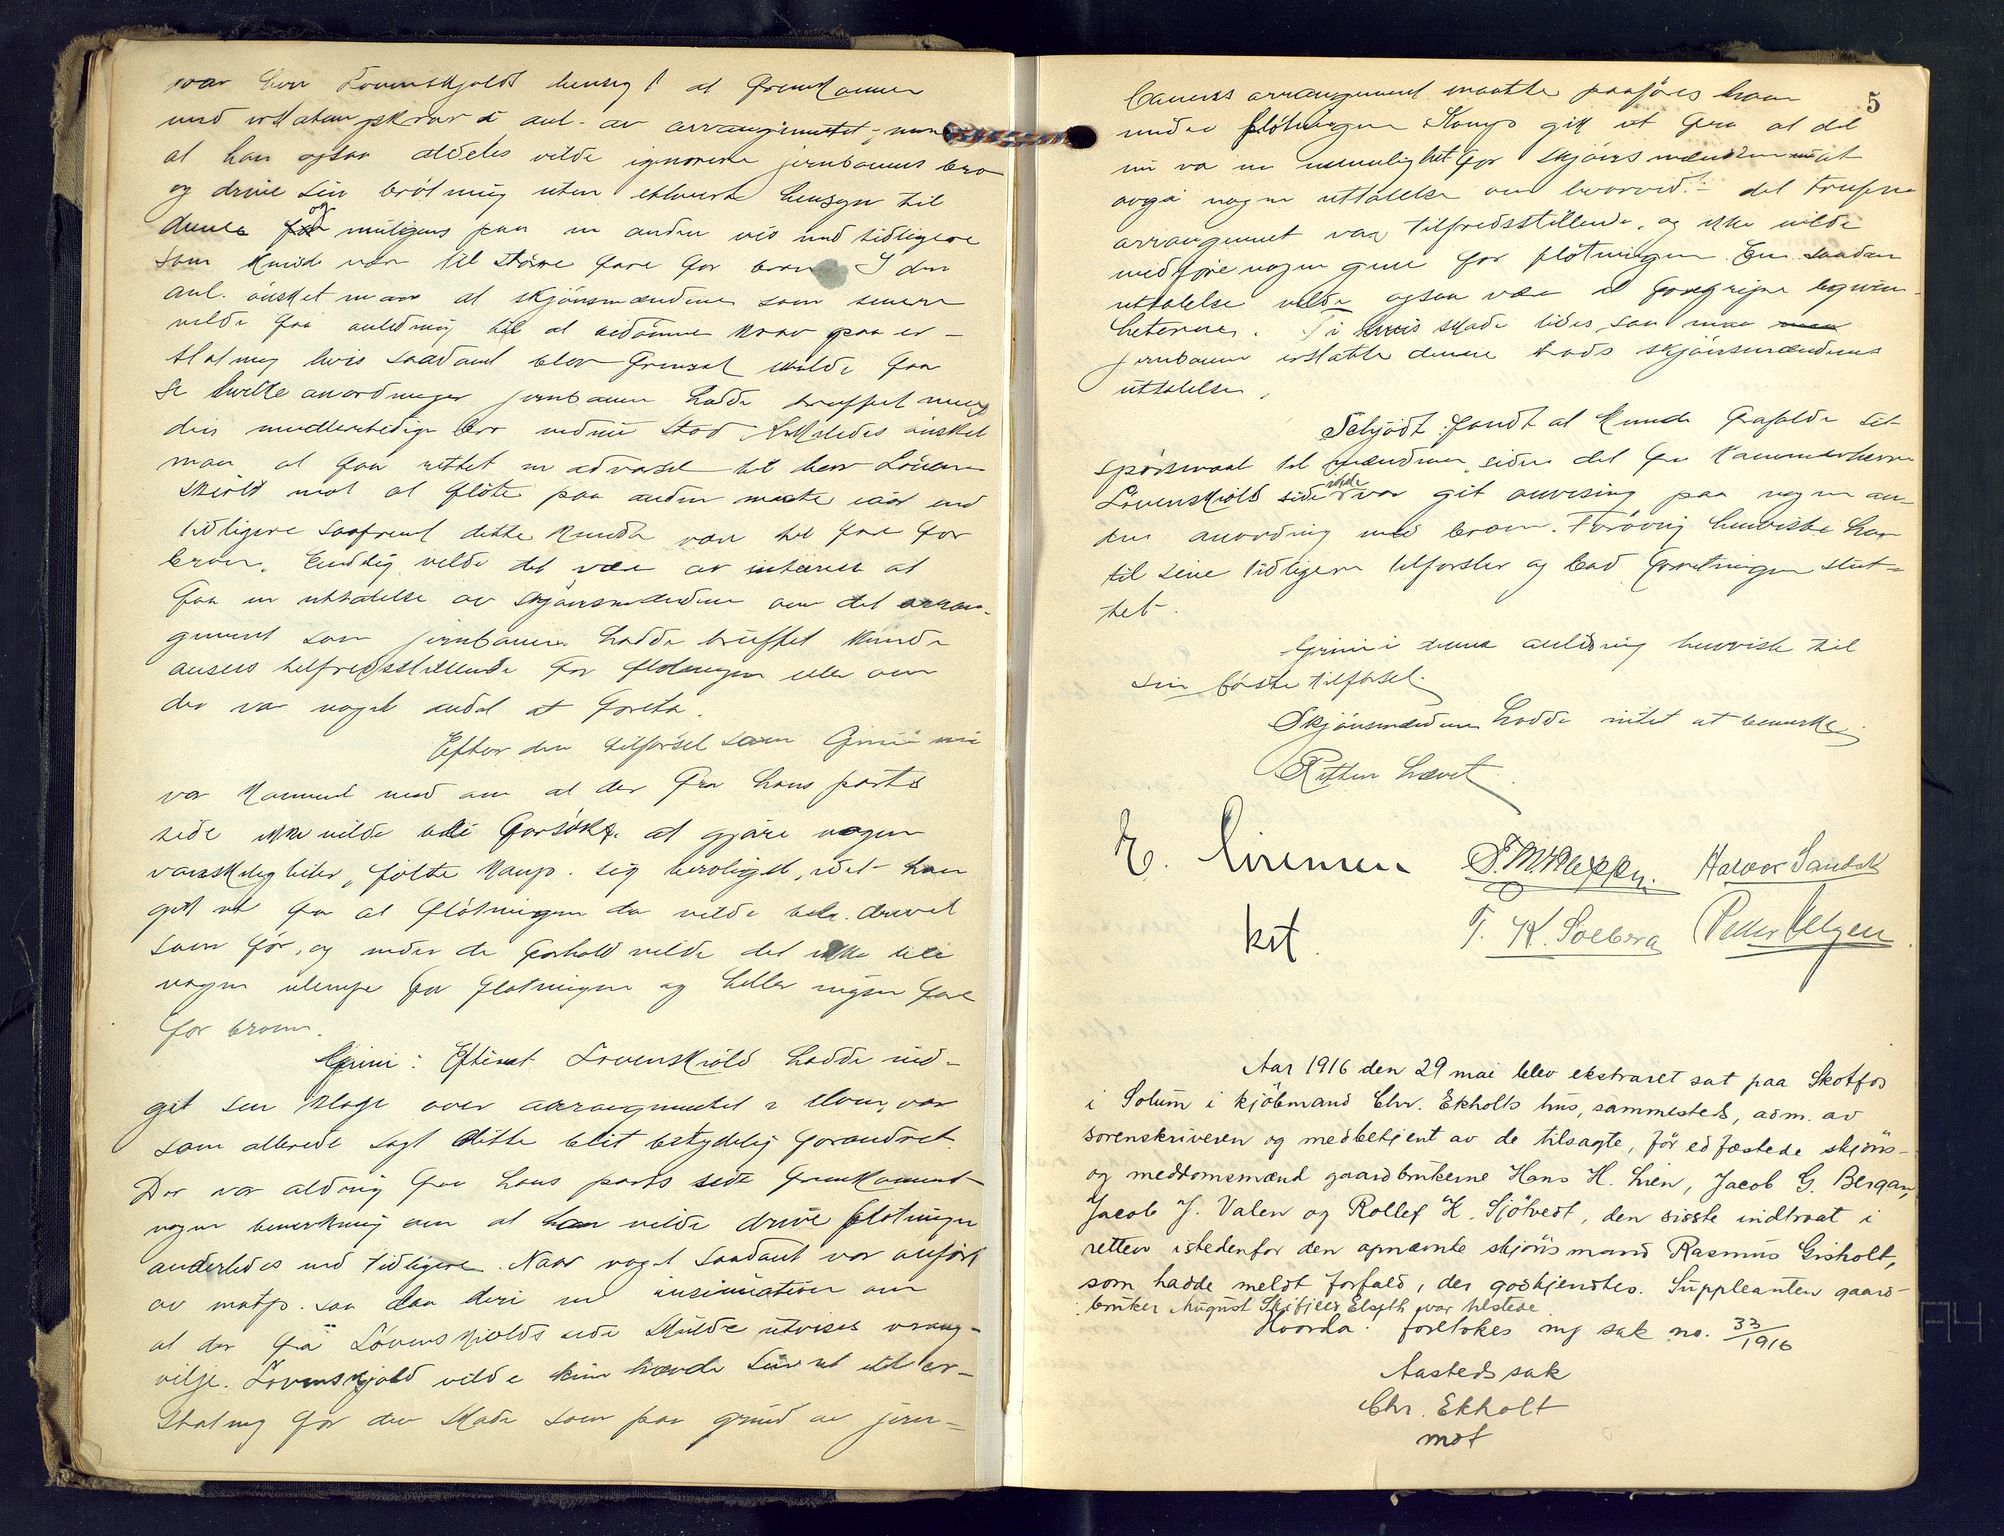 var herr Løvenskjolds hensigt at fremkomme
med erstatningskrav i anl. av arrangementet, men
at han ogsaa aldeles vilde ignorere jernbanens bro
og drive sin brötning uten ethvert hensyn til
denne og muligens paa en anden vis end tidligere
som kunde være til större fare for broen I den
anl. önsket man at skjönsmændene som senere
vilde faa anledning til at bedömme krav paa er-
statning hvis saadant blev fremsat skulde faa
se hvilke anordninger jernbanen hadde truffet mens
den midlertidige bro endnu stod Likeledes önsket
man at faa rettet en advarsel til herr Löven
skiold mot at flöte paa anden maate iaar end
tidligere saafremt dette kunde være til fare for
broen. Endelig vilde det være av interesse at
faa en uttalelse av skjönsmændene om det arran-
gement som jernbanen hadde truffet kunde
ansees tilfredsstillende for flötningen eller om
der var noget andet at foreta.
Efter den tilförsel som Grini nu
var kommet med om at der fra hans parts
side ikke vilde bli forsökt at gjöre nogen
vanskeligheter, fölte Kamp. sig beroliget, idet han
gik ut fra at flötningen da vilde bli drevet
som för, og under de forhold vilde det ikke bli
nogen ulempe for flötningen og heller ingen fare
for broen.
Grini: Efterat Lövenskiold hadde ind-
git sin klage over arrangementet i elven, var
som allerede sagt dette blit betydelig forandret.
Der var aldrig fra hans parts side fremkommet
nogen bemerkning om at han vilde drive flötningen
anderledes end tidligere. Naar noget saadant var anfört
av motp. saa laa deri en insinuation om
at der fra Lövenskiolds side skulde utvises vrang-
vilje. Lövenskjold vilde kun hævde sin ret til er-
statning for den skade som paa grund av jern-
5
banens arrangement maatte paaföres ham
under flötningen Kamp gik ut fra at det
nu var en umulighet for skjönsmændene at
avgi nogen uttalelse om hvorvidt det trufne
arrangement var tilfredsstillende, og ikke vilde
medföre nogen gene for flötningen En saadan
uttalelse vilde ogsaa være at foregripe begiven-
heterne. Ti hvis skade lides, saa maa
jernbanen erstatte denne trods skjönsmændenes
uttalelse.
Schjödt fandt at kunde frafalde sit
spörsmaal til mændene, siden det fra Kammerherre
Lövenskiold side ikke var git anvisning paa nogen an-
den anordning med broen. Forövrig henviste han
til sine tidligere tilförsler og bad forretningen slut-
tet.
Grini i denne anledning henviste til
sin förste tilförsel.
Skjönsmændene hadde intet at bemerke.
Retten hævet.
E. Sirenen S. M. Klappen. Halvor Sandak
kst. T. K. Solberg Peder Elgen
Aar 1916 den 29 mai blev ekstraret sat paa Skotfos
i Solum i kjöbmand Chr. Ekholts hus, sammesteds, adm. av
sorenskriveren og medbetjent av de tilsagte, för edfæstede skjöns-
og meddomsmænd gaardbrukerne Hans H. Lien, Jacob G. Bergan,
Jacob J. Valen og Rollef K. Sjötvedt, den sisste indtraat i
retten istedenfor den opnævnte skjönsmand Rasmus Gisholt,
som hadde meldt forfald, der godkjendtes. Suppleanten gaard-
bruker August Skifjeld Elseth var tilstede.
Hvorda foretokes ny sak no. 33/1916
Aastedssak
Chr. Ekholt
mot